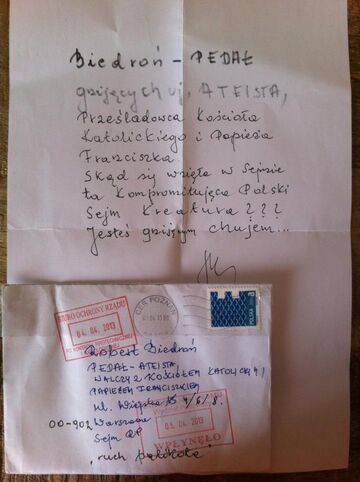 Biedroń - PEDAŁ
gnijący chuj, ATEISTA,
Prześladowca Kościoła
Katolickiego i Papieża
Franciszka
Skąd się wzięła w Sejmie
ta kompromitująca Polski
Sejm kreatura???
Jesteś gnijącym chujem...
BIURO OCHRONY RZĄDU
04. 04. 2013
CER POZNAŃ
Robert Biedroń
PEDAŁ - ATEISTA,
WALCZY Z KOŚCIOŁEM KATOLICKIM I
PAPIEŻEM FRANCISZKIEM
ul. Wiejska 4/6/8.
00-902 Warszawa
Sejm RP
05. 04. 2013
WPŁYNĘŁO
"ruch palikota"